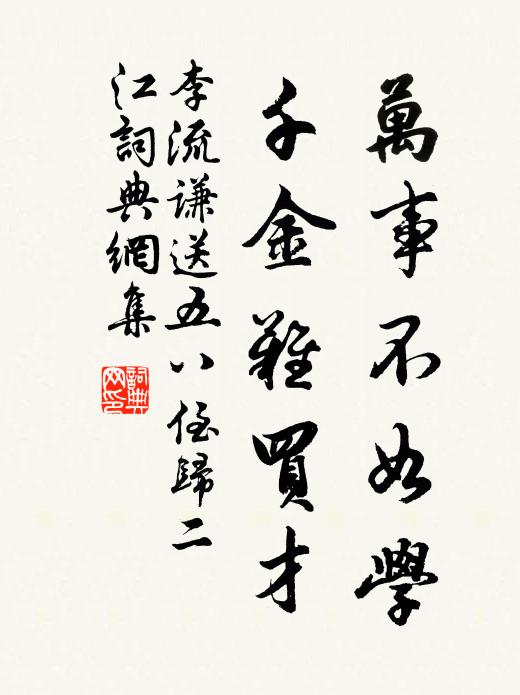 萬事不如學
千金難買才
李流謙送五八侄歸二
江詞典網集
詞典
网印